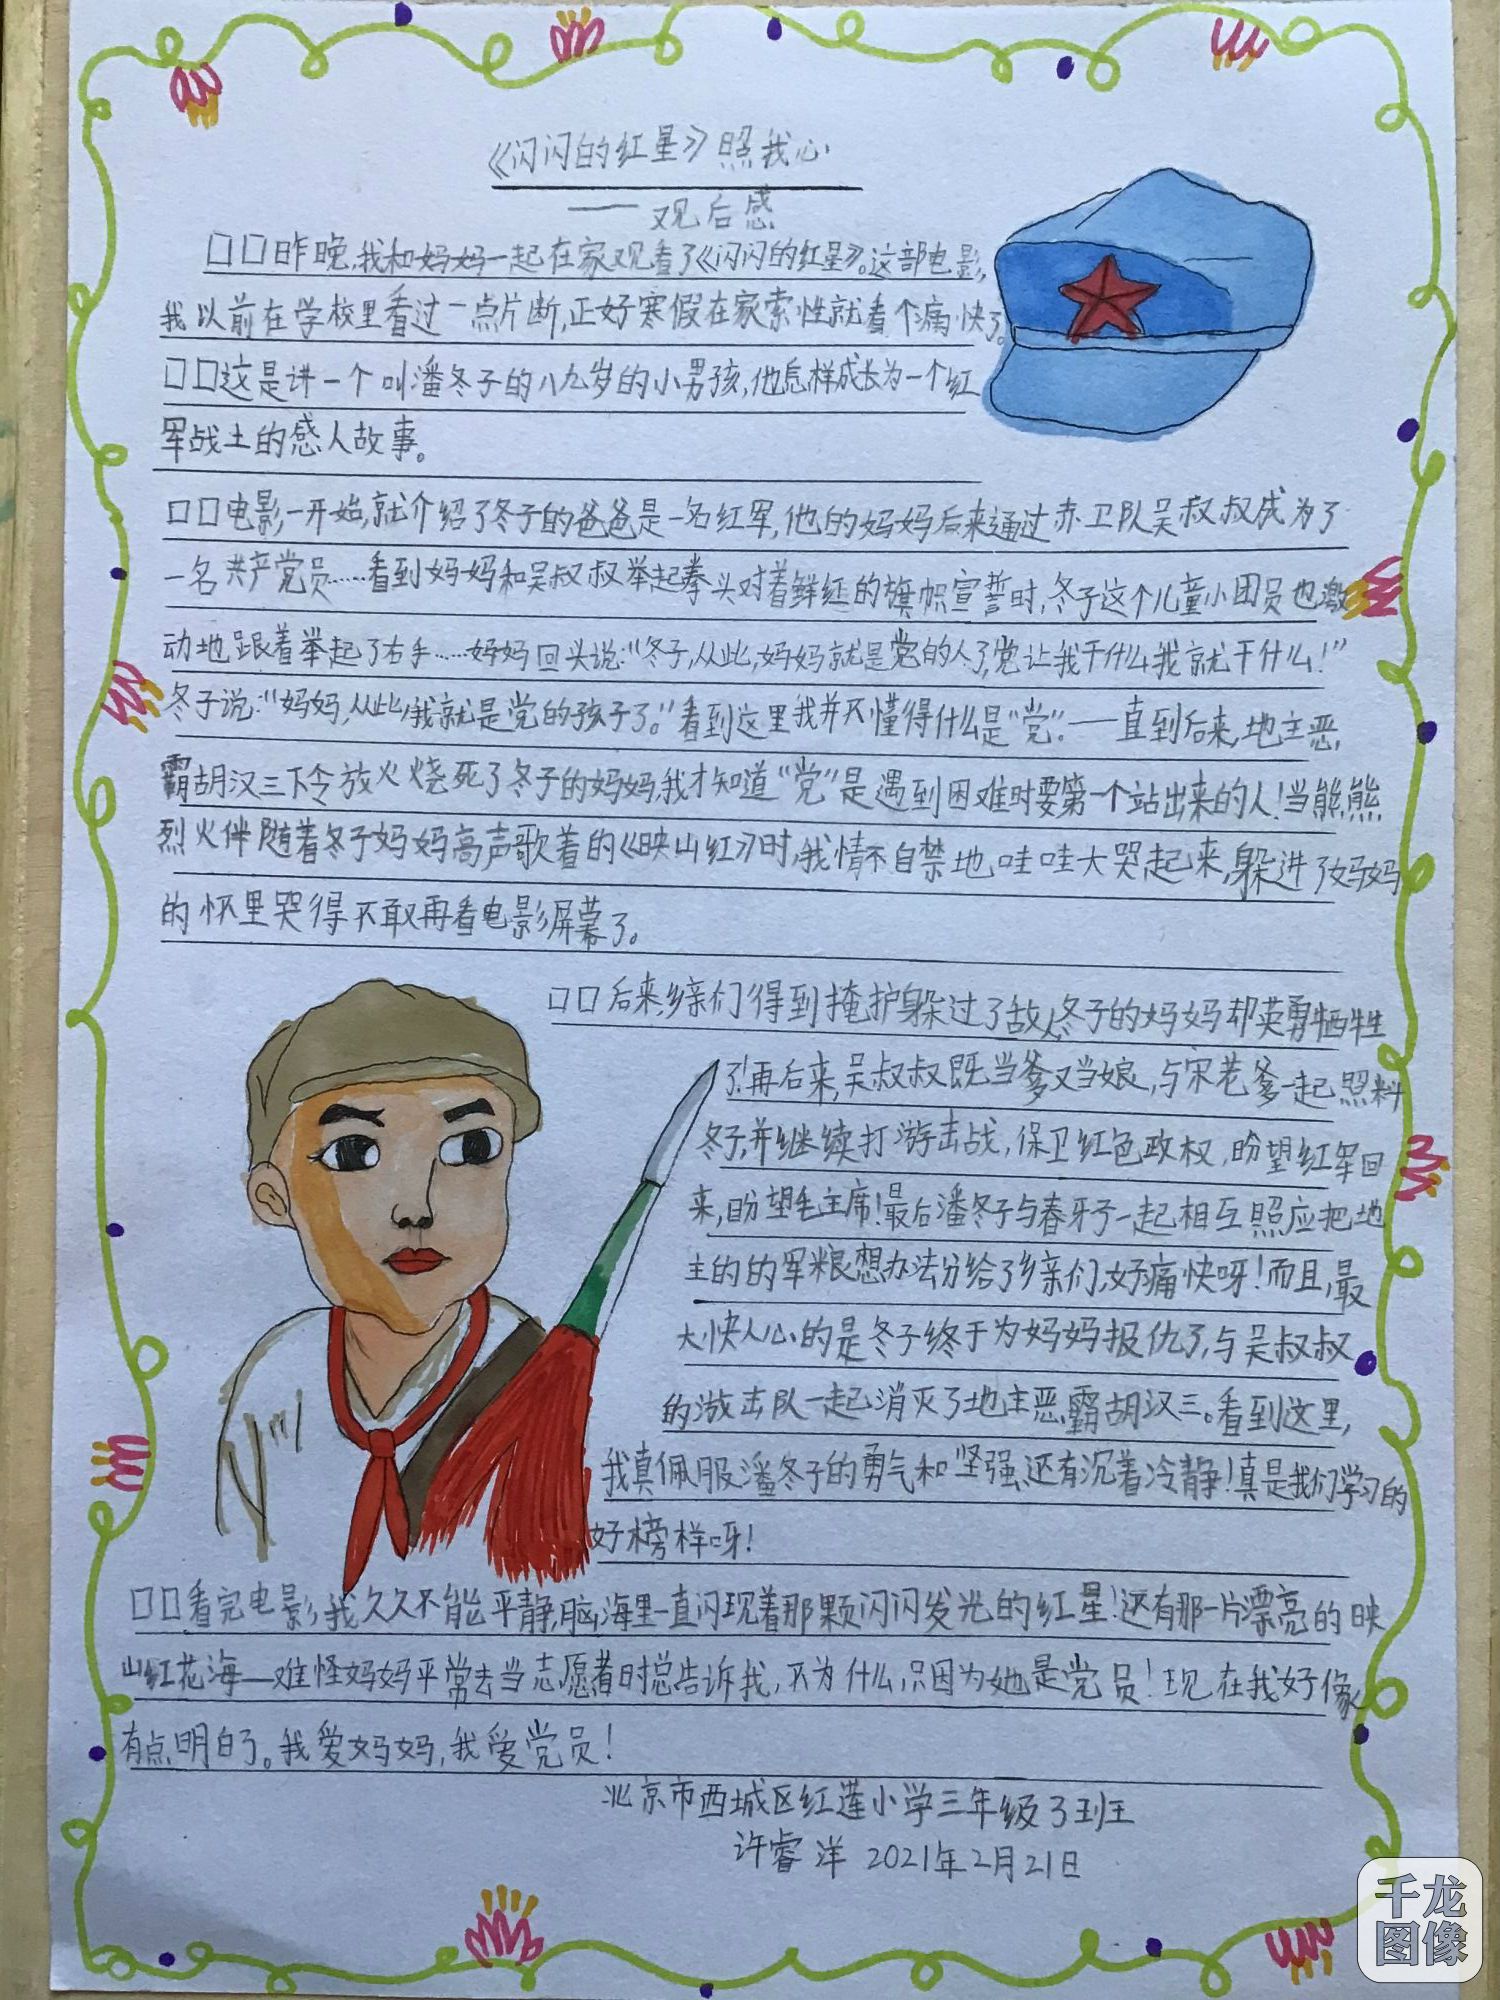 《闪闪的红星》照我心
——观后感
□□昨晚,我和妈妈一起在家观看了《闪闪的红星》。这部电影,
我以前在学校里看过一点片断,正好寒假在家索性就看个痛快了。
□□这是讲一个叫潘冬子的八九岁的小男孩,他怎样成长为一个红
军战士的感人故事。
□□电影一开始,就介绍了冬子的爸爸是一名红军,他的妈妈后来通过赤卫队吴叔叔成为了
一名共产党员……看到妈妈和吴叔叔举起拳头对着鲜红的旗帜宣誓时,冬子这个儿童小团员也激
动地跟着举起了右手……妈妈回头说:“冬子,从此,妈妈就是党的人了,党让我干什么我就干什么!”
冬子说:“妈妈,从此,我就是党的孩子了。”看到这里我并不懂得什么是“党”——直到后来,地主恶
霸胡汉三下令放火烧死了冬子的妈妈,我才知道“党”是遇到困难时要第一个站出来的人!当熊熊
烈火伴随着冬子妈妈高声歌着的《映山红》时,我情不自禁地哇哇大哭起来,躲进了妈妈
的怀里哭得不敢再看电影屏幕了。
□□后来,乡亲们得到掩护躲过了敌人,冬子的妈妈却英勇牺牲
了!再后来,吴叔叔既当爹又当娘,与宋老爹一起照料
冬子,并继续打游击战,保卫红色政权,盼望红军回
来,盼望毛主席!最后潘冬子与春牙子一起相互照应把地
主的的军粮想办法分给了乡亲们,好痛快呀!而且,最
大快人心的是冬子终于为妈妈报仇了,与吴叔叔
的游击队一起消灭了地主恶霸胡汉三。看到这里,
我真佩服潘冬子的勇气和坚强,还有沉着冷静!真是我们学习的
好榜样呀!
□□看完电影,我久久不能平静,脑海里一直闪现着那颗闪闪发光的红星!还有那一片漂亮的映
山红花海——难怪妈妈平常去当志愿者时总告诉我,不为什么,只因为她是党员!现在我好像
有点明白了。我爱妈妈,我爱党员!
北京市西城区红莲小学三年级3班
许睿洋 2021年2月21日
千龙
图像